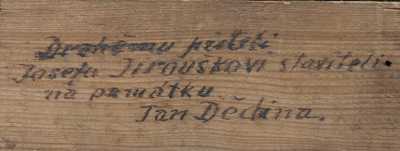 Drahému příteli
Josefu Jirouškovi staviteli
na památku
Jan Dědina.